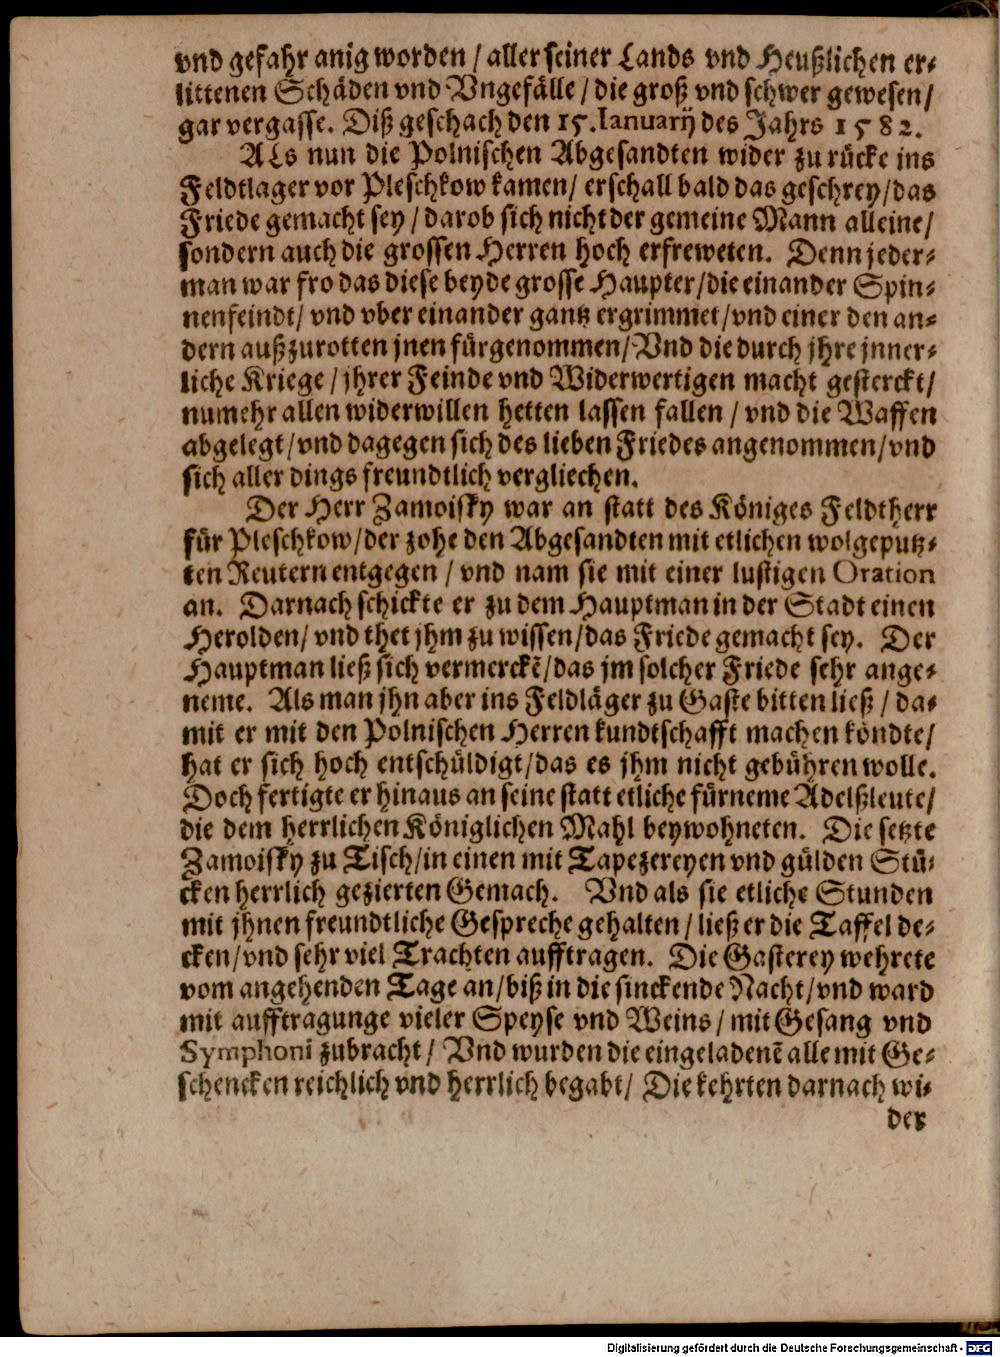 vnd gefahr anig worden / aller seiner Lands vnd Heußlichen er-
littenen Schäden vnd Vngefälle / die groß vnd schwer gewesen /
gar vergasse. Diß geschach den 15. Ianuarij des Jahrs 1582.
ALs nun die Polnischen Abgesandten wider zu rücke ins
Feldtlager vor Pleschkow kamen / erschall bald das geschrey / das
Friede gemacht sey / darob sich nicht der gemeine Mann alleine /
sondern auch die grossen Herren hoch erfreweten. Denn jeder-
man war fro das diese beyde grosse Haupter / die einander Spin-
nenfeindt / vnd vber einander gantz ergrimmet / vnd einer den an-
dern außzurotten jnen fürgenommen / Vnd die durch jhre jnner-
liche Kriege / jhrer Feinde vnd Widerwertigen macht gesterckt /
numehr allen widerwillen hetten lassen fallen / vnd die Waffen
abgelegt / vnd dagegen sich des lieben Friedes angenommen / vnd
sich aller dings freundtlich vergliechen.
Der Herr Zamoisky war an statt des Königes Feldtherr
für Pleschkow / der zohe den Abgesandten mit etlichen wolgeputz-
ten Reutern entgegen / vnd nam sie mit einer lustigen Oration
an. Darnach schickte er zu dem Hauptman in der Stadt einen
Herolden / vnd thet jhm zu wissen / das Friede gemacht sey. Der
Hauptman ließ sich vermerckẽ / das jm solcher Friede sehr ange-
neme. Als man jhn aber ins Feldläger zu Gaste bitten ließ / da-
mit er mit den Polnischen Herren kundtschafft machen köndte /
hat er sich hoch entschüldigt / das es jhm nicht gebühren wolle.
Doch fertigte er hinaus an seine statt etliche fürneme Adelßleute /
die dem herrlichen Königlichen Mahl beywohneten. Die setzte
Zamoisky zu Tisch / in einen mit Tapezereyen vnd gülden Stü-
cken herrlich gezierten Gemach. Vnd als sie etliche Stunden
mit jhnen freundtliche Gespreche gehalten / ließ er die Taffel de-
cken / vnd sehr viel Trachten aufftragen. Die Gasterey wehrete
vom angehenden Tage an / biß in die sinckende Nacht / vnd ward
mit aufftragunge vieler Speyse vnd Weins / mit Gesang vnd
Symphonî zubracht / Vnd wurden die eingeladenẽ alle mit Ge-
schencken reichlich vnd herrlich begabt / Die kehrten darnach wi-
der
Digitalisierung gefördert durch die Deutsche Forschungsgemeinschaft - DFG